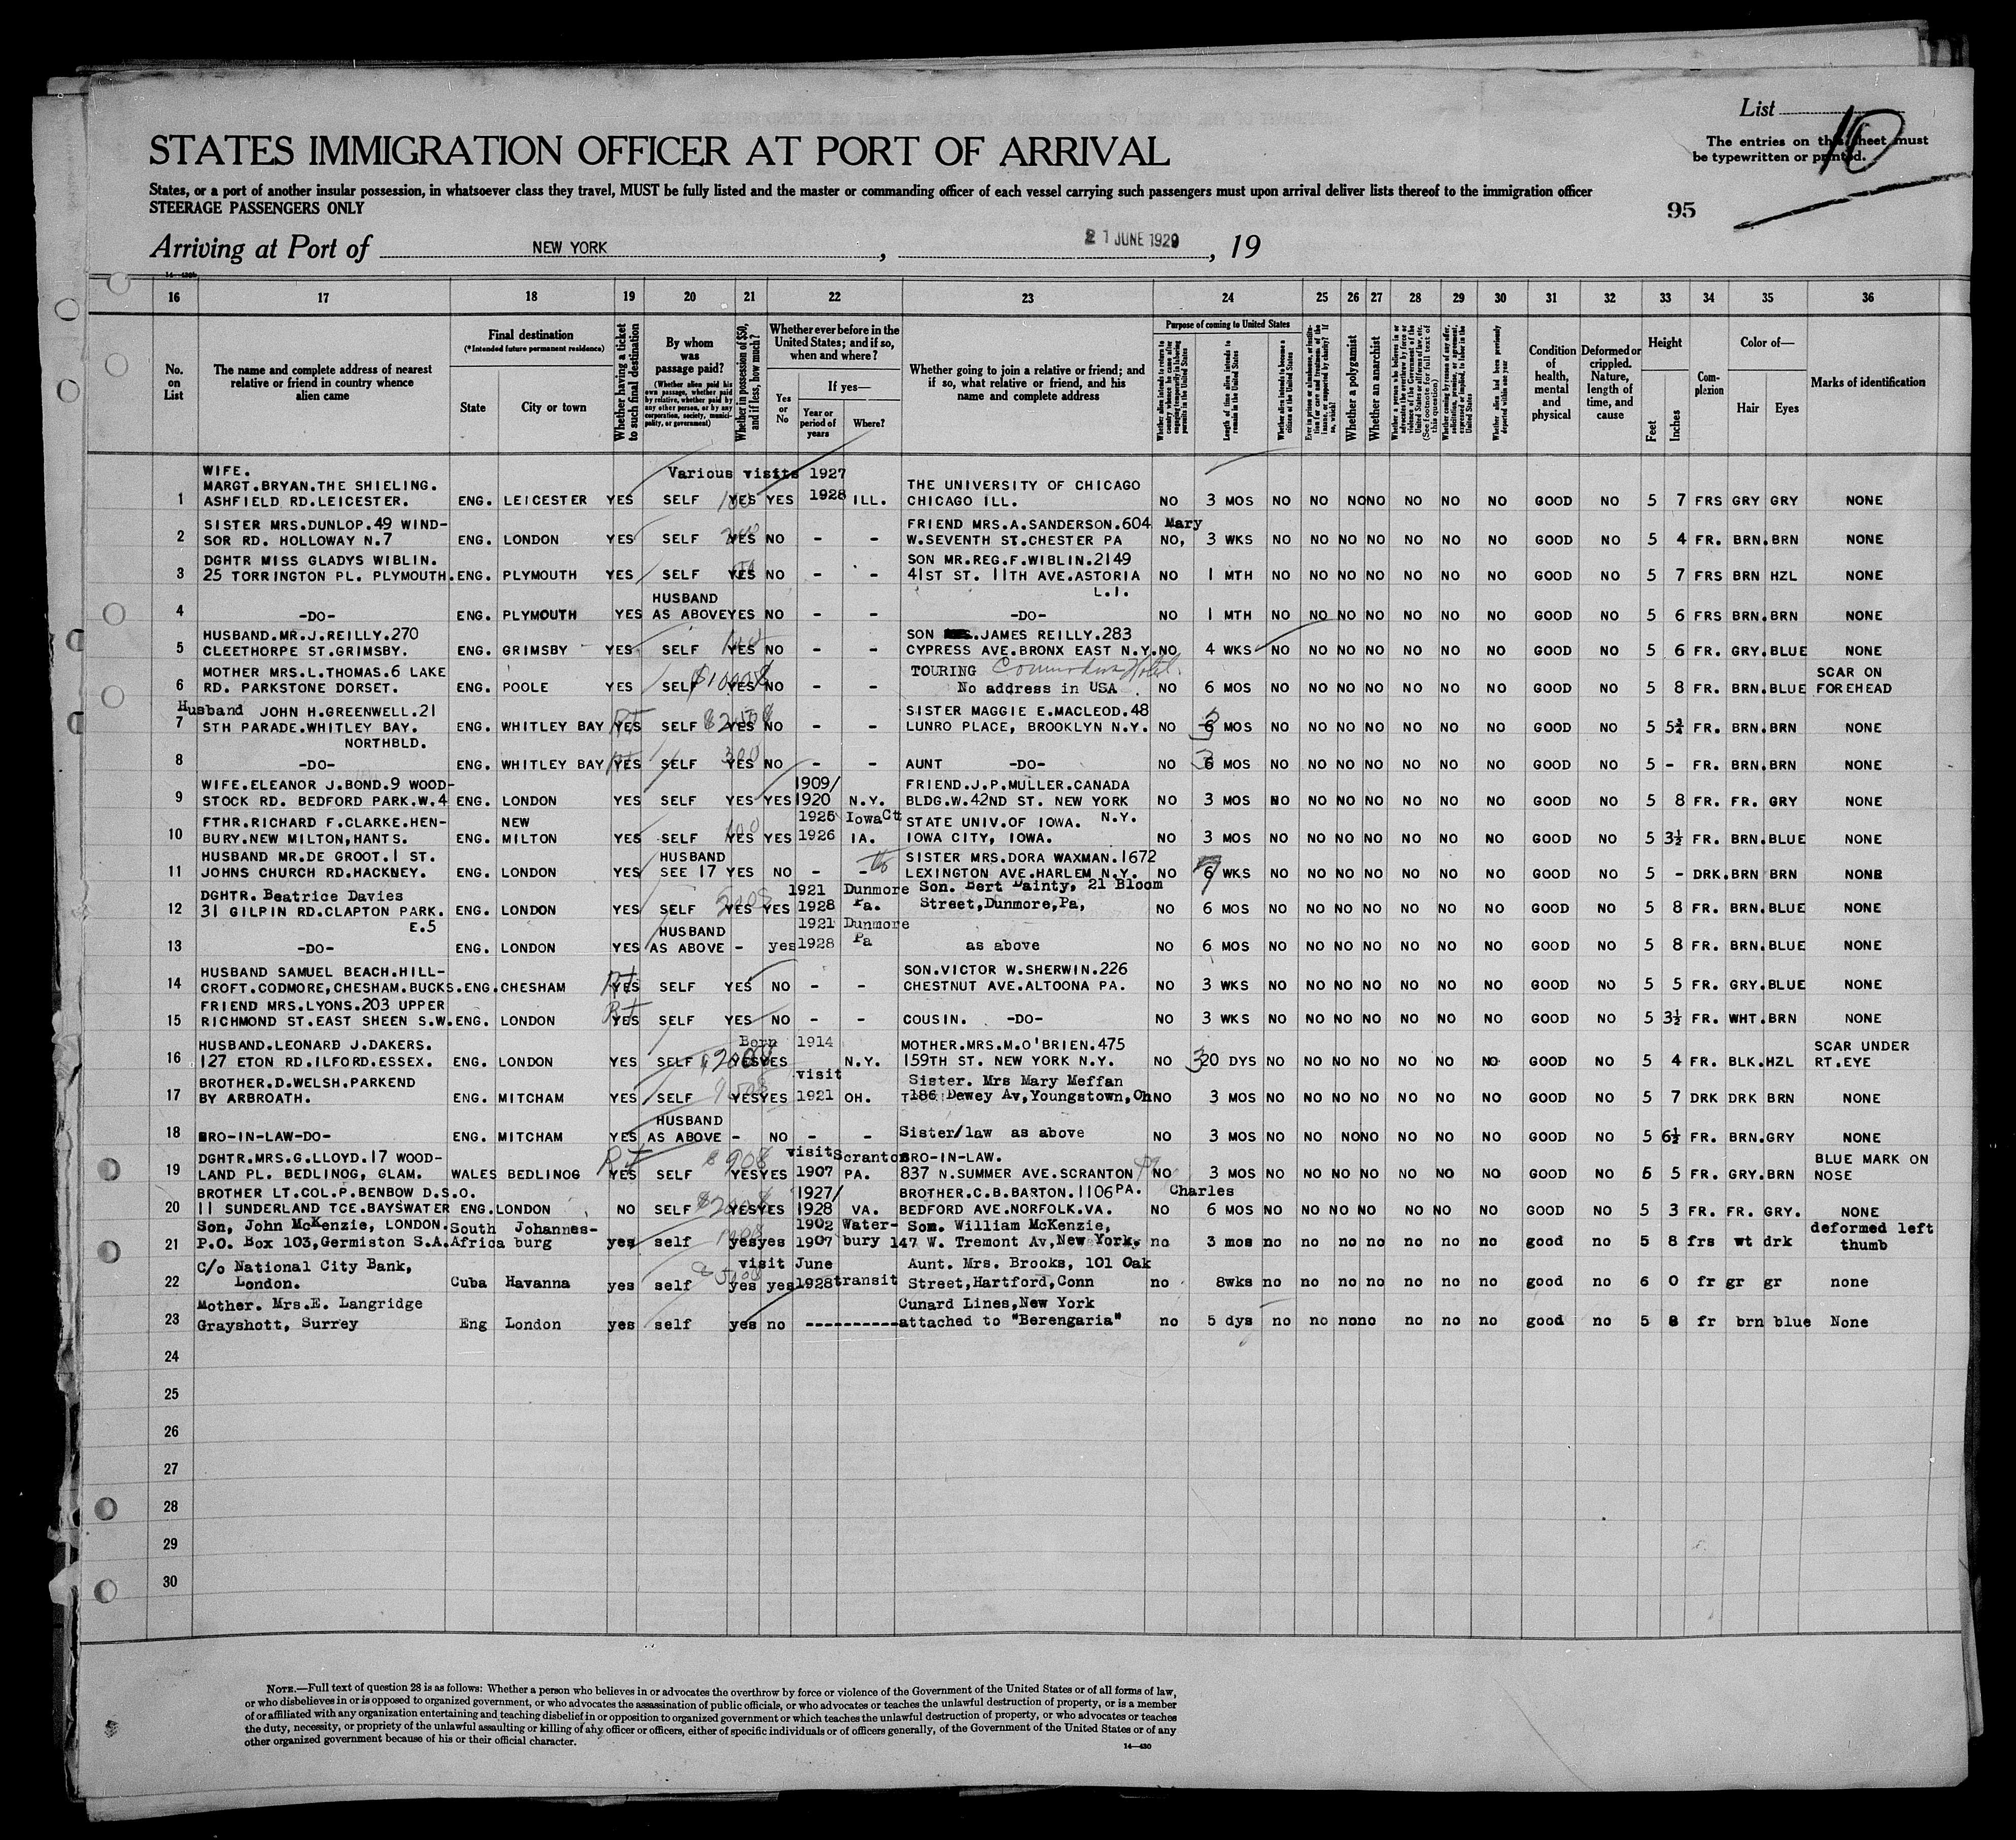 List
10
The entries on this sheet must
be typewritten or printed.
STATES IMMIGRATION OFFICER AT PORT OF ARRIVAL
States, or a port of another insular possession, in whatsoever class they travel, MUST be fully listed and the master or commanding officer of each vessel carrying such passengers must upon arrival deliver lists thereof to the immigration officer
STEERAGE PASSENGERS ONLY
95
Arriving at Port of NEW YORK , 21 JUNE 1929 , 19
16 17 18 19 20 21 22 23 24 25 26 27 28 29 30 31 32 33 34 35 36
No. on List
The name and complete address of nearest relative or friend in country whence alien came
Final destination
(*Intended future permanent residence)
State
City or town
Whether having a ticket to such final destination
By whom was passage paid?
(Whether alien paid his own passage, whether paid by relative, whether paid by any other person, or by any corporation, society, municipality, or government)
Whether in possession of $50, and if less, how much?
Whether ever before in the United States; and if so, when and where?
Yes or No
If yes—
Year or period of years
Where?
Whether going to join a relative or friend; and if so, what relative or friend, and his name and complete address
Purpose of coming to United States
Length of time alien intends to remain in the United States
Whether alien intends to become a citizen of the United States
Whether a polygamist
Whether an anarchist
Condition of health, mental and physical
Deformed or crippled. Nature, length of time, and cause
Height
Feet
Inches
Complexion
Color of—
Hair
Eyes
Marks of identification
WIFE. Various visits 1927
MARGT.BRYAN.THE SHIELING. THE UNIVERSITY OF CHICAGO
1 ASHFIELD RD.LEICESTER. ENG. LEICESTER YES SELF 100 YES YES 1928 ILL. CHICAGO ILL. NO 3 MOS NO NO NO NO NO NO NO GOOD NO 5 7 FRS GRY GRY NONE
SISTER MRS.DUNLOP.49 WIND- FRIEND MRS.A.SANDERSON.604 Mary
2 SOR RD. HOLLOWAY N.7 ENG. LONDON YES SELF YES NO - - W.SEVENTH ST.CHESTER PA NO, 3 WKS NO NO NO NO NO NO NO GOOD NO 5 4 FR. BRN. BRN NONE
DGHTR MISS GLADYS WIBLIN. SON MR.REG.F.WIBLIN.2149
3 25 TORRINGTON PL. PLYMOUTH. ENG. PLYMOUTH YES SELF YES NO - - 41ST ST. 11TH AVE.ASTORIA NO 1 MTH NO NO NO NO NO NO NO GOOD NO 5 7 FRS BRN HZL NONE
HUSBAND L.I.
4 -DO- ENG. PLYMOUTH YES AS ABOVE YES NO - - -DO- NO 1 MTH NO NO NO NO NO NO NO GOOD NO 5 6 FRS BRN. BRN NONE
HUSBAND.MR.J.REILLY.270 SON .JAMES REILLY.283
5 CLEETHORPE ST.GRIMSBY. ENG. GRIMSBY YES SELF YES NO - - CYPRESS AVE.BRONX EAST N.Y. NO 4 WKS NO NO NO NO NO NO NO GOOD NO 5 6 FR. GRY. BLUE NONE
MOTHER MRS.L.THOMAS.6 LAKE TOURING Commodore Hotel. SCAR ON
6 RD. PARKSTONE DORSET. ENG. POOLE YES SELF YES NO - - No address in USA. NO 6 MOS NO NO NO NO NO NO NO GOOD NO 5 8 FR. BRN. BLUE FOREHEAD
Husband JOHN H.GREENWELL.21 SISTER MAGGIE E.MACLEOD.48
7 STH PARADE.WHITLEY BAY. ENG. WHITLEY BAY YES SELF YES NO - - LUNRO PLACE, BROOKLYN N.Y. NO 6 MOS NO NO NO NO NO NO NO GOOD NO 5 5¾ FR. BRN. BRN NONE
NORTHBLD.
8 -DO- ENG. WHITLEY BAY YES SELF 300 YES NO - - AUNT -DO- NO 6 MOS NO NO NO NO NO NO NO GOOD NO 5 - FR. BRN. BRN NONE
WIFE.ELEANOR J.BOND.9 WOOD- 1909/ FRIEND.J.P.MULLER.CANADA
9 STOCK RD. BEDFORD PARK.W.4 ENG. LONDON YES SELF YES YES 1920 N.Y. BLDG.W.42ND ST. NEW YORK NO 3 MOS NO NO NO NO NO NO NO GOOD NO 5 8 FR. FR. GRY NONE
FTHR.RICHARD F.CLARKE.HEN- NEW 1925 Iowa Ct STATE UNIV.OF IOWA. N.Y.
10 BURY.NEW MILTON,HANTS. ENG. MILTON YES SELF 100 YES YES 1926 IA. IOWA CITY, IOWA. NO 3 MOS NO NO NO NO NO NO NO GOOD NO 5 3½ FR. BRN. BLUE NONE
HUSBAND MR.DE GROOT.1 ST. HUSBAND SISTER MRS.DORA WAXMAN.1672
11 JOHNS CHURCH RD.HACKNEY. ENG. LONDON YES SEE 17 YES NO - - LEXINGTON AVE.HARLEM N.Y. NO 6 WKS NO NO NO NO NO NO NO GOOD NO 5 - DRK. BRN BRN NONE
DGHTR. Beatrice Davies 1921 Dunmore Son. Bert Dainty, 21 Bloom
12 31 GILPIN RD.CLAPTON PARK. ENG. LONDON YES SELF YES YES 1928 Pa. Street,Dunmore,Pa, NO 6 MOS NO NO NO NO NO NO NO GOOD NO 5 8 FR. BRN. BLUE NONE
E.5 HUSBAND 1921 Dunmore
13 -DO- ENG. LONDON YES AS ABOVE - yes 1928 Pa as above NO 6 MOS NO NO NO NO NO NO NO GOOD NO 5 8 FR. BRN. BLUE NONE
HUSBAND SAMUEL BEACH.HILL- SON.VICTOR W.SHERWIN.226
14 CROFT.CODMORE,CHESHAM.BUCKS. ENG. CHESHAM YES SELF YES NO - - CHESTNUT AVE.ALTOONA PA. NO 3 WKS NO NO NO NO NO NO NO GOOD NO 5 5 FR. GRY. BLUE NONE
FRIEND MRS.LYONS.203 UPPER
15 RICHMOND ST.EAST SHEEN S.W. ENG. LONDON YES SELF YES NO - - COUSIN. -DO- NO 3 WKS NO NO NO NO NO NO NO GOOD NO 5 3½ FR. WHT. BRN NONE
HUSBAND.LEONARD J.DAKERS. Born 1914 MOTHER.MRS.M.O'BRIEN.475 SCAR UNDER
16 127 ETON RD.ILFORD.ESSEX. ENG. LONDON YES SELF YES YES N.Y. 159TH ST. NEW YORK N.Y. NO 20 DYS NO NO NO NO NO NO NO GOOD NO 5 4 FR. BLK. HZL RT.EYE
BROTHER.D.WELSH.PARKEND visit Sister. Mrs Mary Meffan
17 BY ARBROATH. ENG. MITCHAM YES SELF YES YES 1921 OH. 186 Dewey Av,Youngstown,Oh NO 3 MOS NO NO NO NO NO NO NO GOOD NO 5 7 DRK DRK BRN NONE
HUSBAND
18 BRO-IN-LAW-DO- ENG. MITCHAM YES AS ABOVE - NO - - Sister/law as above NO 3 MOS NO NO NO NO NO NO NO GOOD NO 5 6½ FR. BRN. GRY NONE
DGHTR.MRS.G.LLOYD.17 WOOD- visit Scranton BRO-IN-LAW. BLUE MARK ON
19 LAND PL. BEDLINOG, GLAM. WALES BEDLINOG YES SELF YES YES 1907 PA. 837 N.SUMMER AVE.SCRANTON NO 3 MOS NO NO NO NO NO NO NO GOOD NO 5 5 FR. GRY. BRN NOSE
BROTHER LT.COL.P.BENBOW D.S.O. 1927/ BROTHER.C.B.BARTON.1106 PA. Charles
20 11 SUNDERLAND TCE.BAYSWATER ENG. LONDON NO SELF YES YES 1928 VA. BEDFORD AVE.NORFOLK.VA. NO 6 MOS NO NO NO NO NO NO NO GOOD NO 5 3 FR. FR. GRY. NONE
Son, John McKenzie, LONDON. South Johannes- 1902 Water- Son. William McKenzie, deformed left
21 P.O. Box 103,Germiston S.A. Africa burg yes self yes yes 1907 bury 147 W. Tremont Av,New York, no 3 mos no no no no no no no good no 5 8 frs wt drk thumb
C/o National City Bank, visit June Aunt. Mrs. Brooks, 101 Oak
22 London. Cuba Havanna yes self yes yes 1928 transit Street,Hartford,Conn no 8wks no no no no no no no good no 6 0 fr gr gr none
Mother. Mrs.E. Langridge Cunard Lines,New York
23 Grayshott, Surrey Eng London yes self yes no ---------- attached to "Berengaria" no 5 dys no no no no no no no good no 5 8 fr brn blue None
24
25
26
27
28
29
30
NOTE.—Full text of question 28 is as follows: Whether a person who believes in or advocates the overthrow by force or violence of the Government of the United States or of all forms of law,
or who disbelieves in or is opposed to organized government, or who advocates the assassination of public officials, or who advocates or teaches the unlawful destruction of property, or is a member
of or affiliated with any organization entertaining and teaching disbelief in or opposition to organized government or which teaches the unlawful destruction of property, or who advocates or teaches
the duty, necessity, or propriety of the unlawful assaulting or killing of any officer or officers, either of specific individuals or of officers generally, of the Government of the United States or of any
other organized government because of his or their official character.
14—430